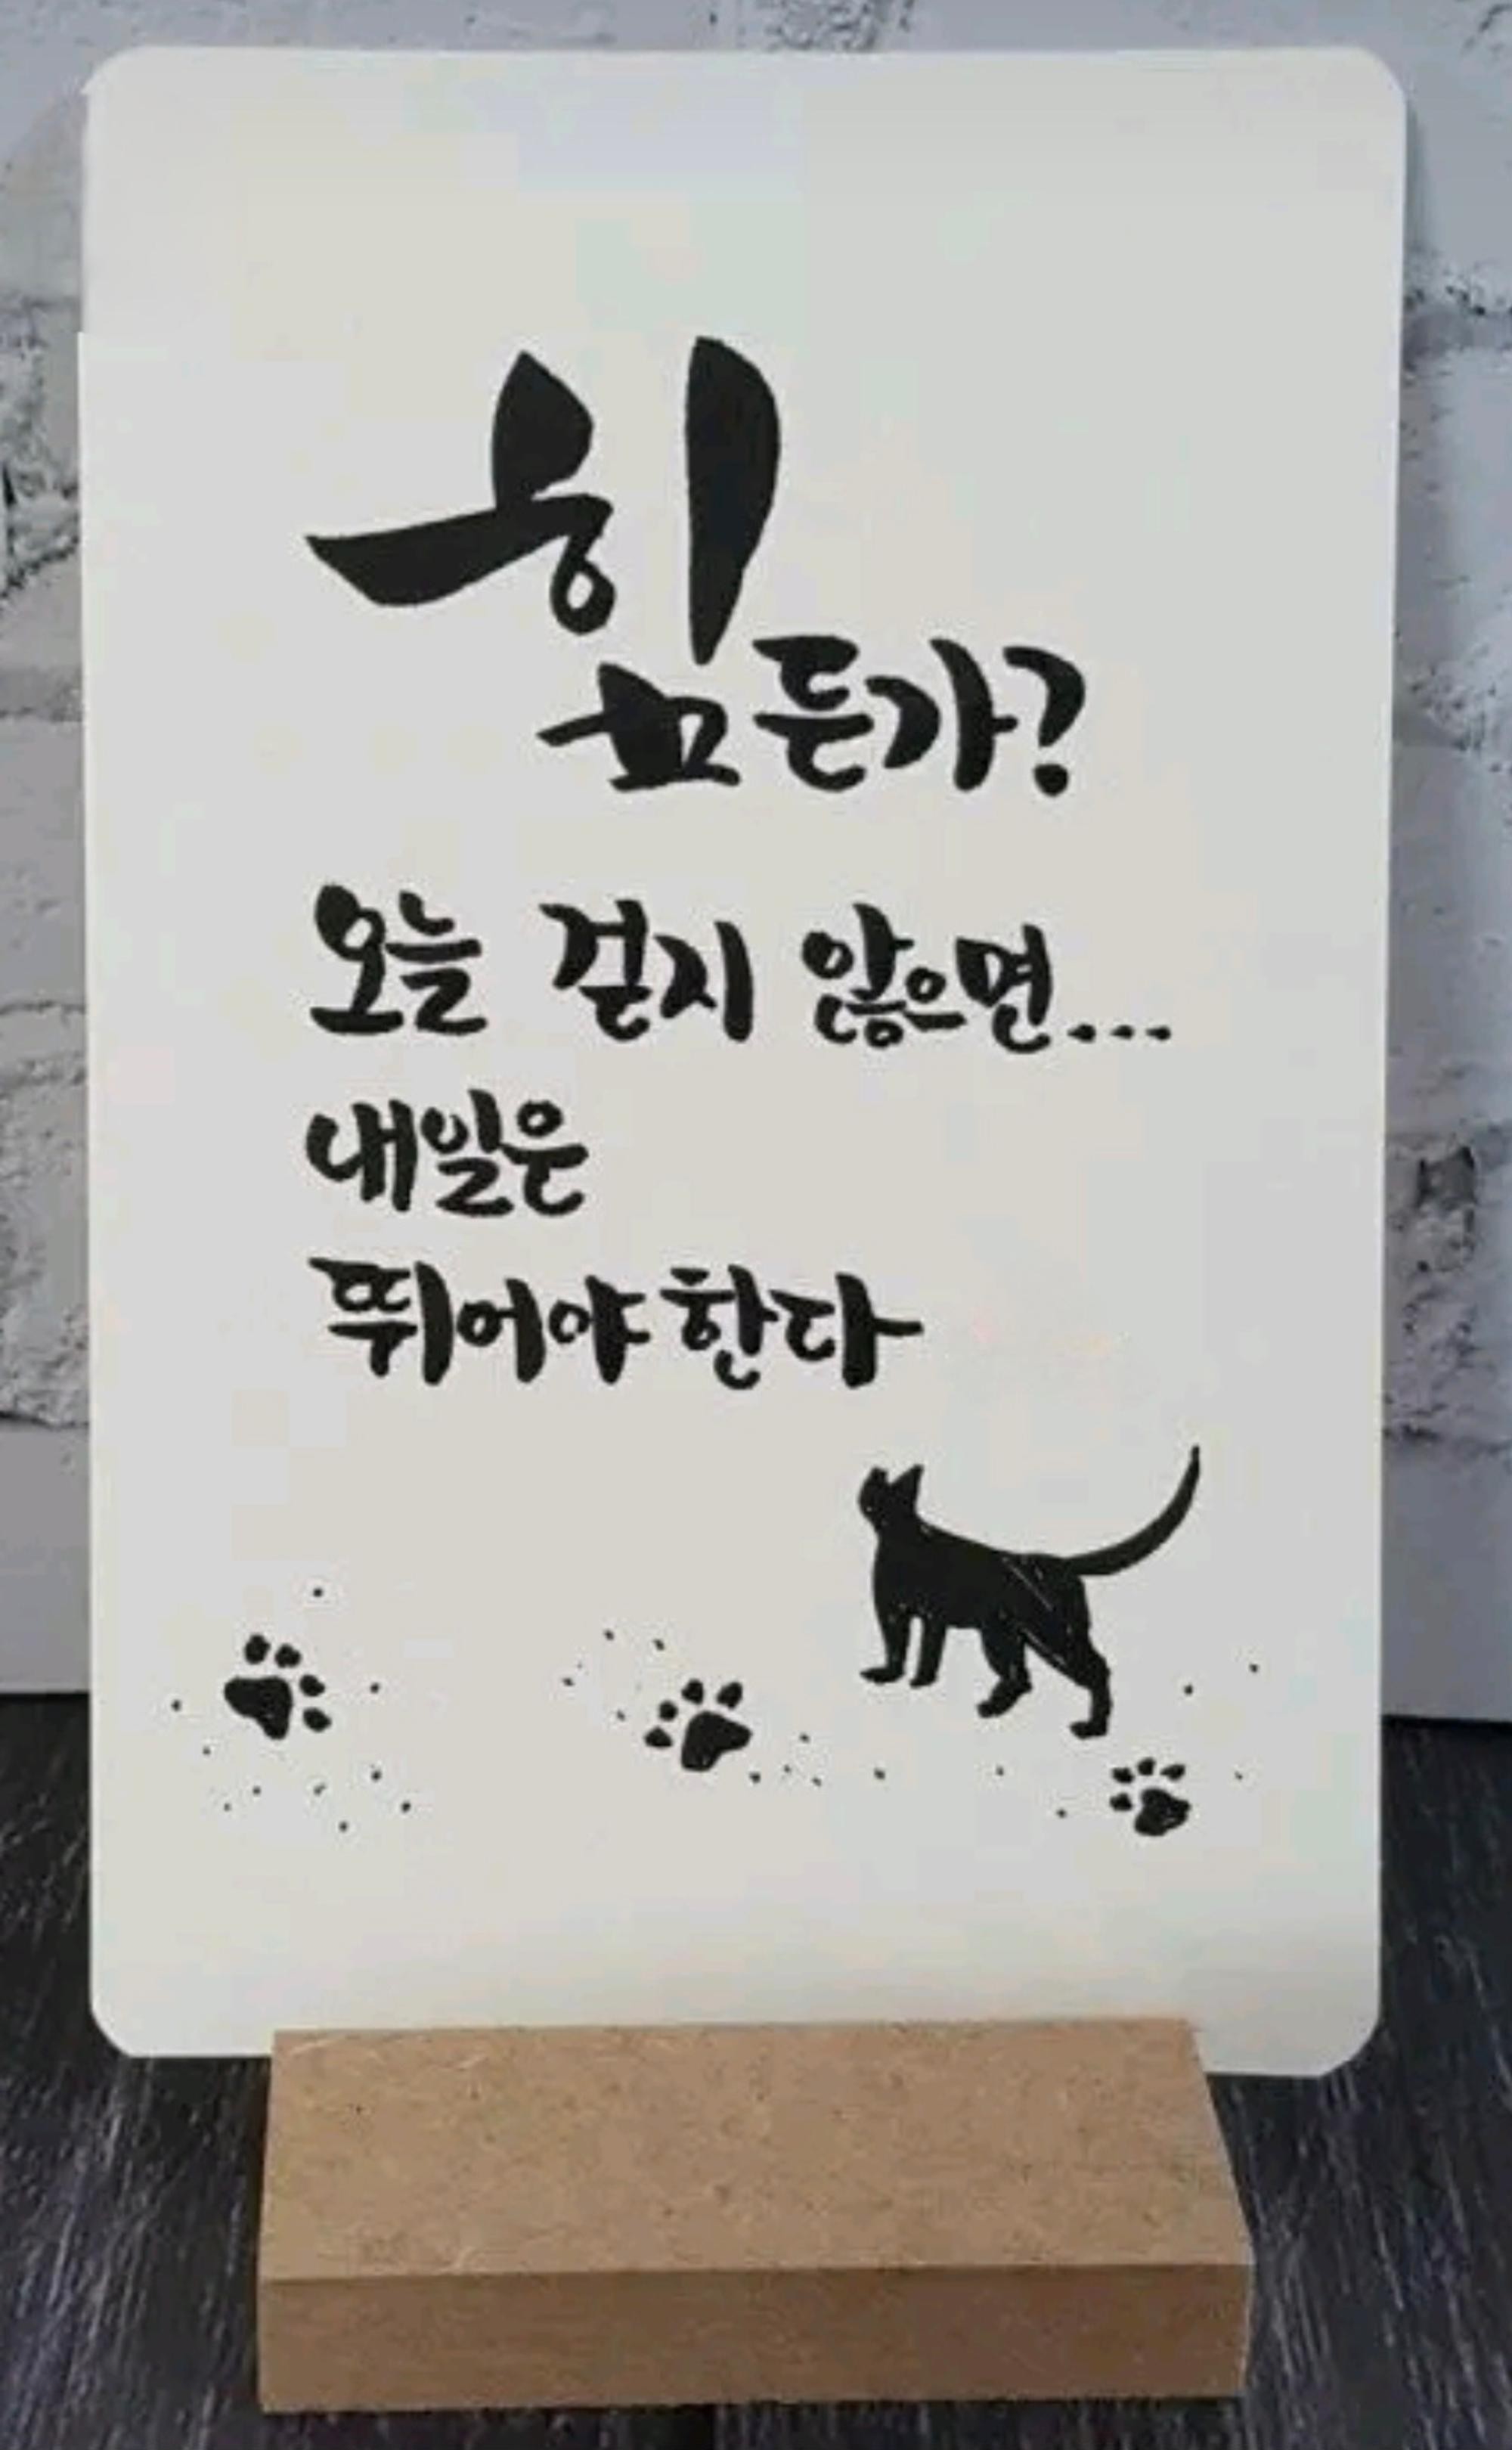 힘든가?
오늘 걷지 않으면...
내일은
뛰어야 한다